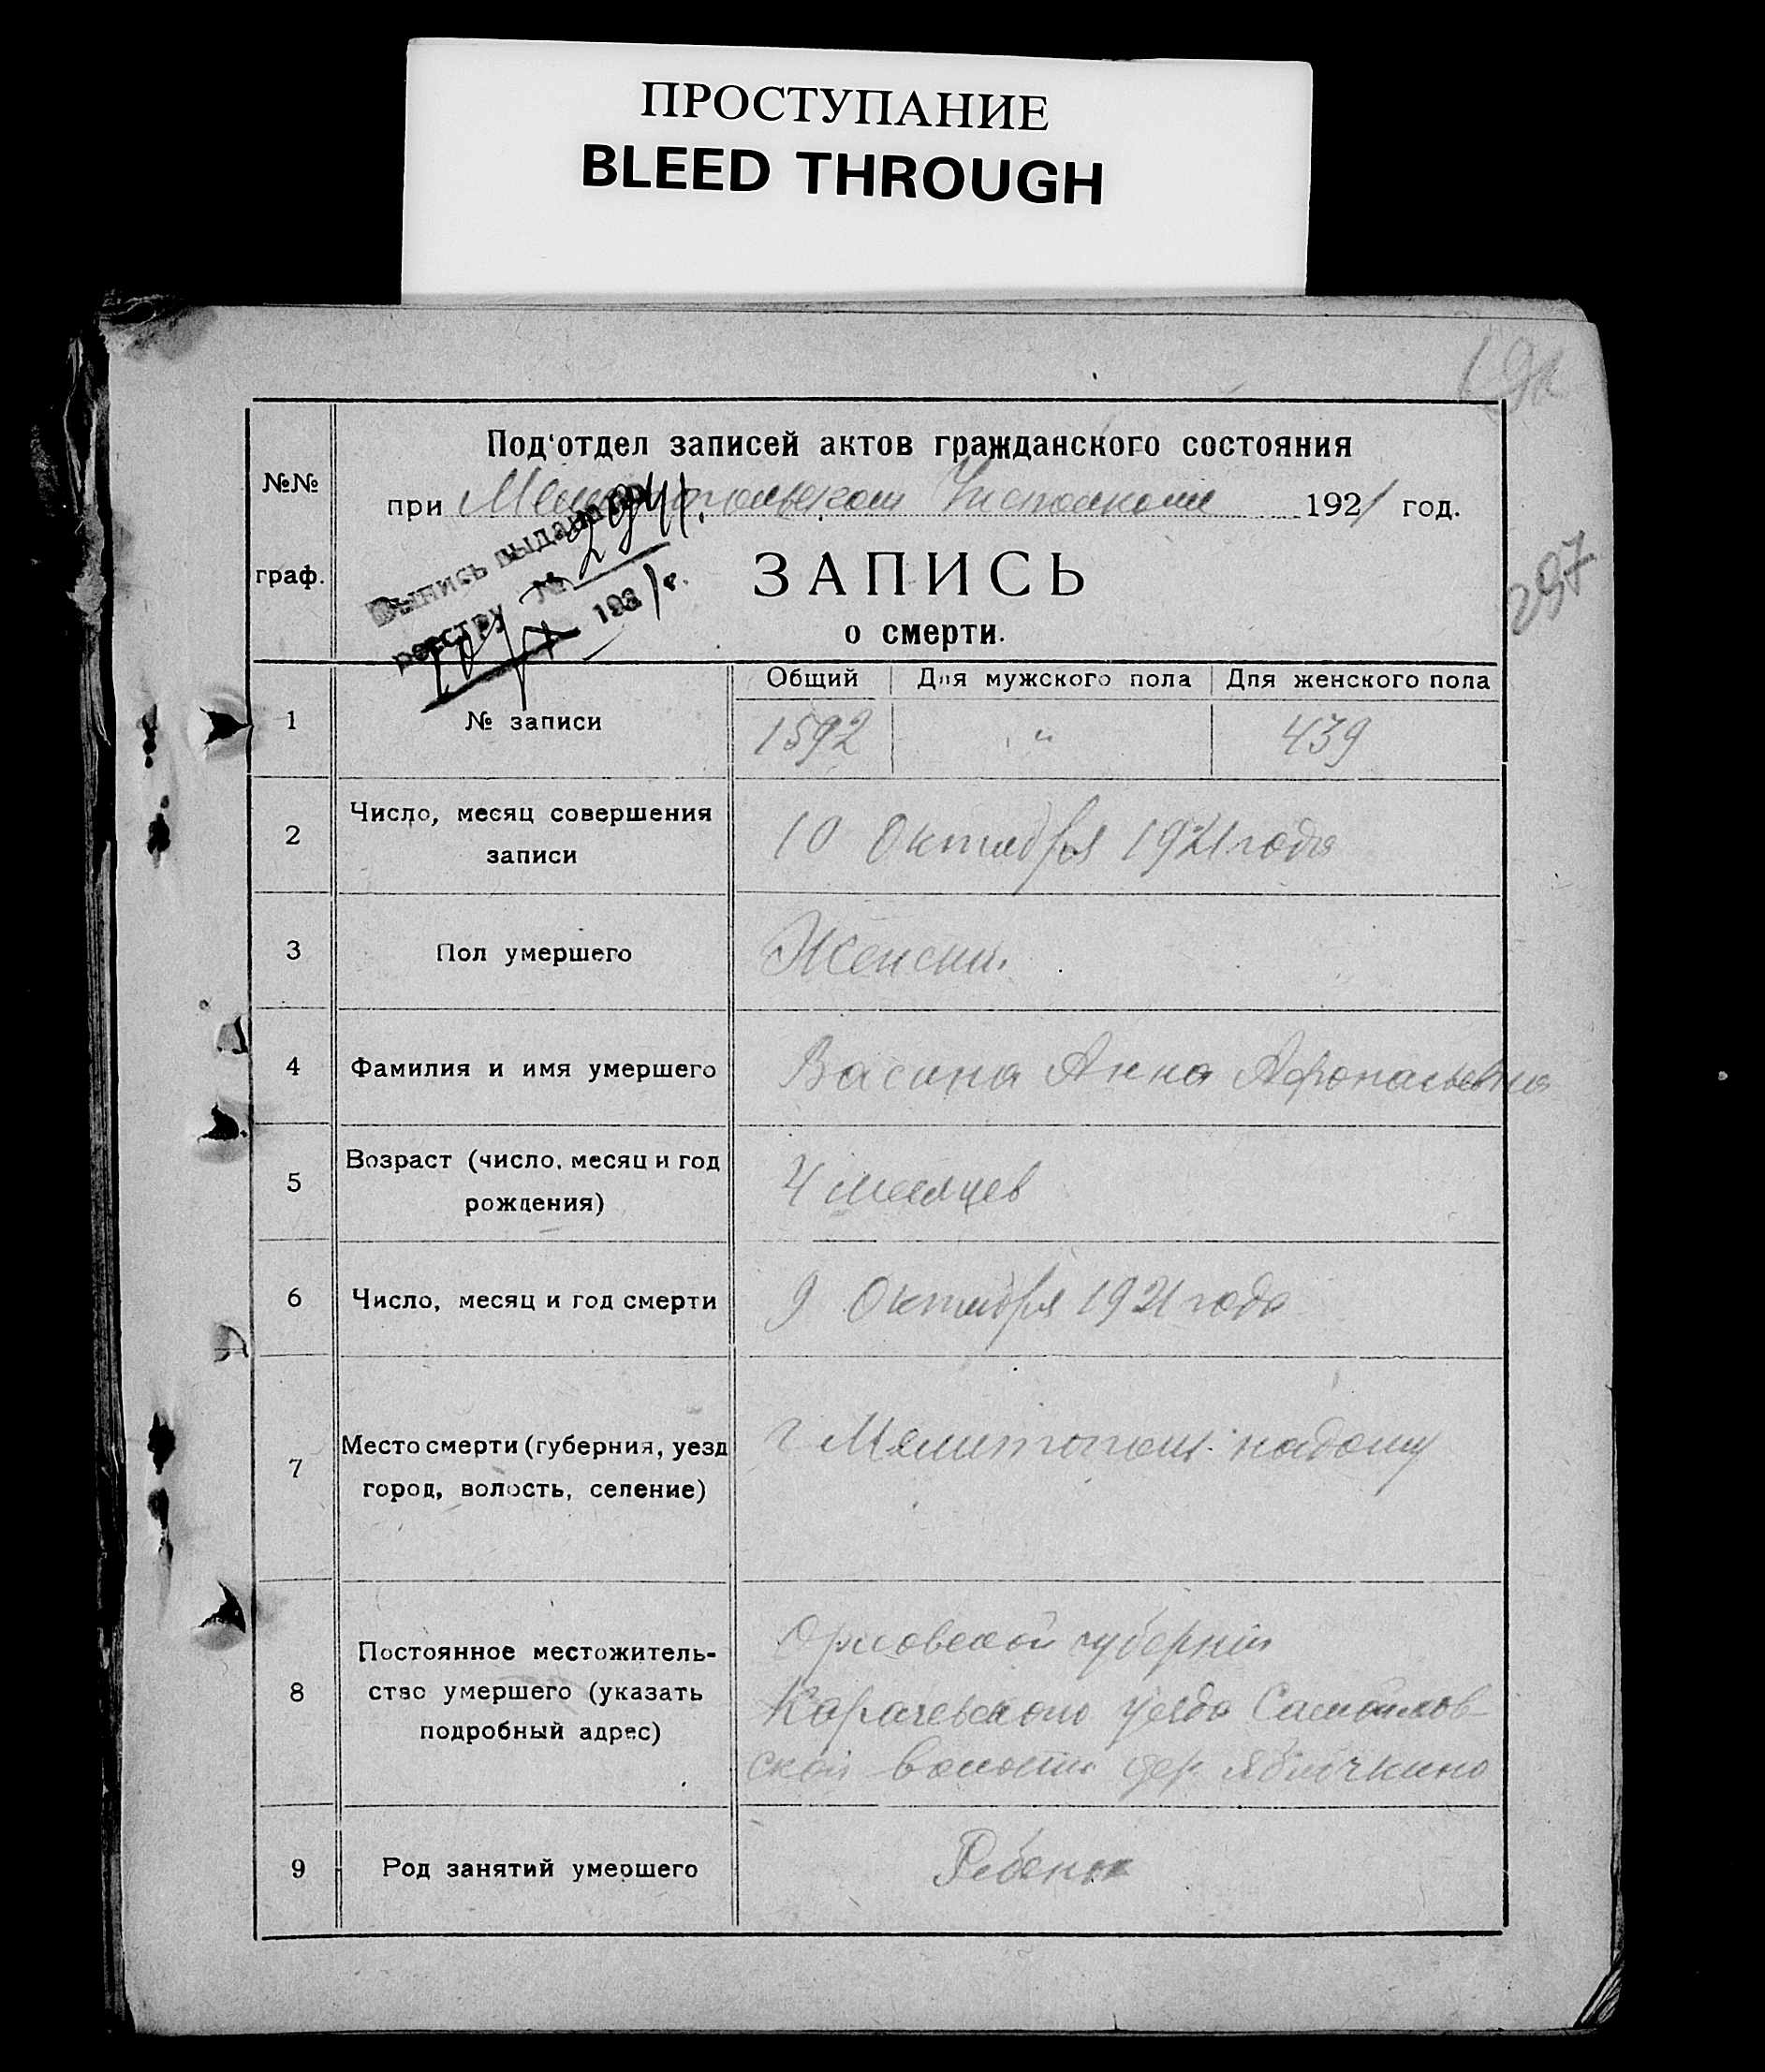 ПРОСТУПАНИЕ
BLEED THROUGH
191
Под'отдел записей актов гражданского состояния
№№
при Мелитопольском Исполкоме 1921 год.
Выпись выдана по
реестру № 2941.
193 г.
297
граф.
ЗАПИСЬ
о смерти.
Общий Для мужского пола Для женского пола
1 № записи 1592 " 439
2 Число, месяц совершения
записи
10 Октября 1921 года
3 Пол умершего Женский
4 Фамилия и имя умершего Васина Анна
5 Возраст (число, месяц и год
рождения)
4 месяцев
6 Число, месяц и год смерти 9 Октября 1921 года
7 Место смерти (губерния, уезд
город, волость, селение)
г Мелитополь на дому
8 Постоянное местожитель-
ство умершего (указать
подробный адрес)
Орловской губернии
Карачевского уезда Самойлов-
ской волости дер Яблочкино
9 Род занятий умершего Ребенок